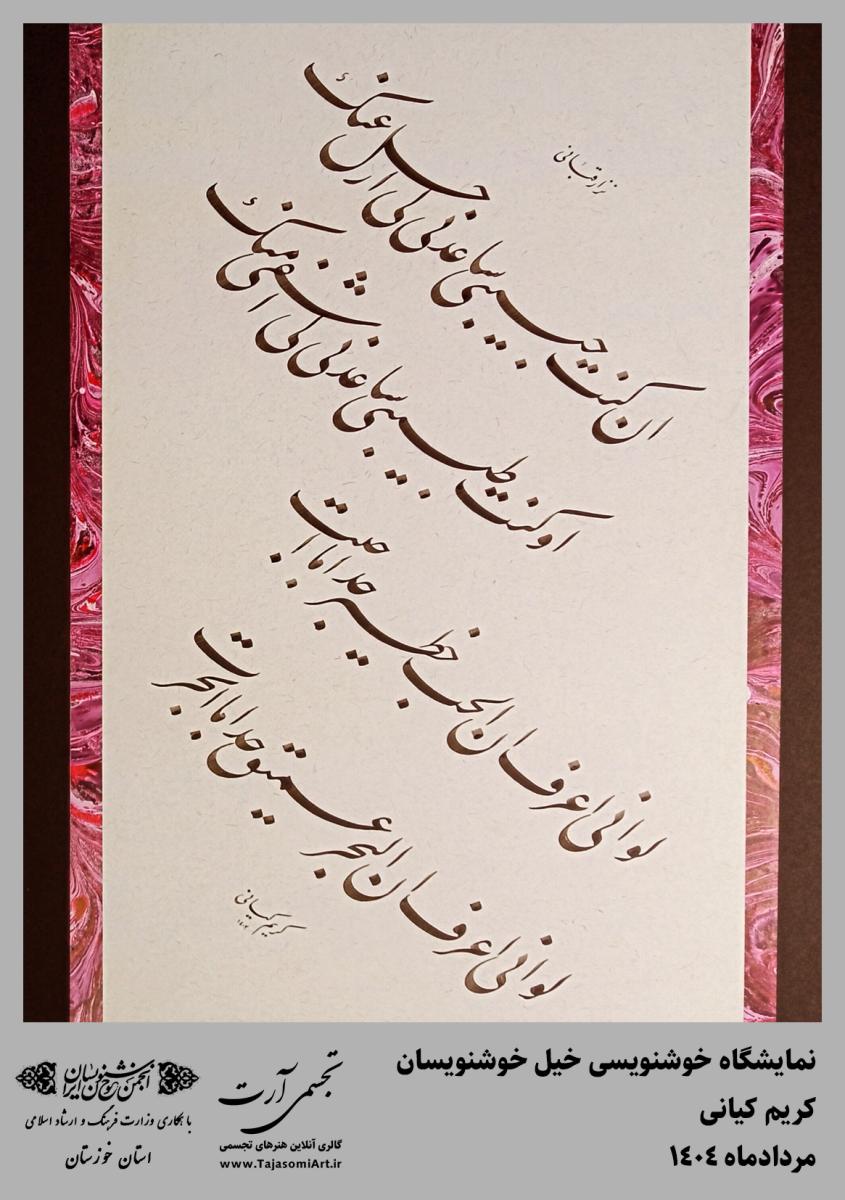 نزار قبانی
ان کنت حبیبی ساعدنی کی ارحل عنک
او کنت طبیبی ساعدنی کی اشفی منک
لو انی اعرف ان الحب خطیر جدا ما احببت
لو انی اعرف ان البحر عمیق جدا ما ابحرت
کریم کیانی
نمایشگاه خوشنویسی خیل خوشنویسان
کریم کیانی
مردادماه ۱۴۰۴
تجسمی آرت
گالری آنلاین هنرهای تجسمی
www.TajasomiArt.ir
انجمن خوشنویسان ایران
با همکاری وزارت فرهنگ و ارشاد اسلامی
استان خوزستان